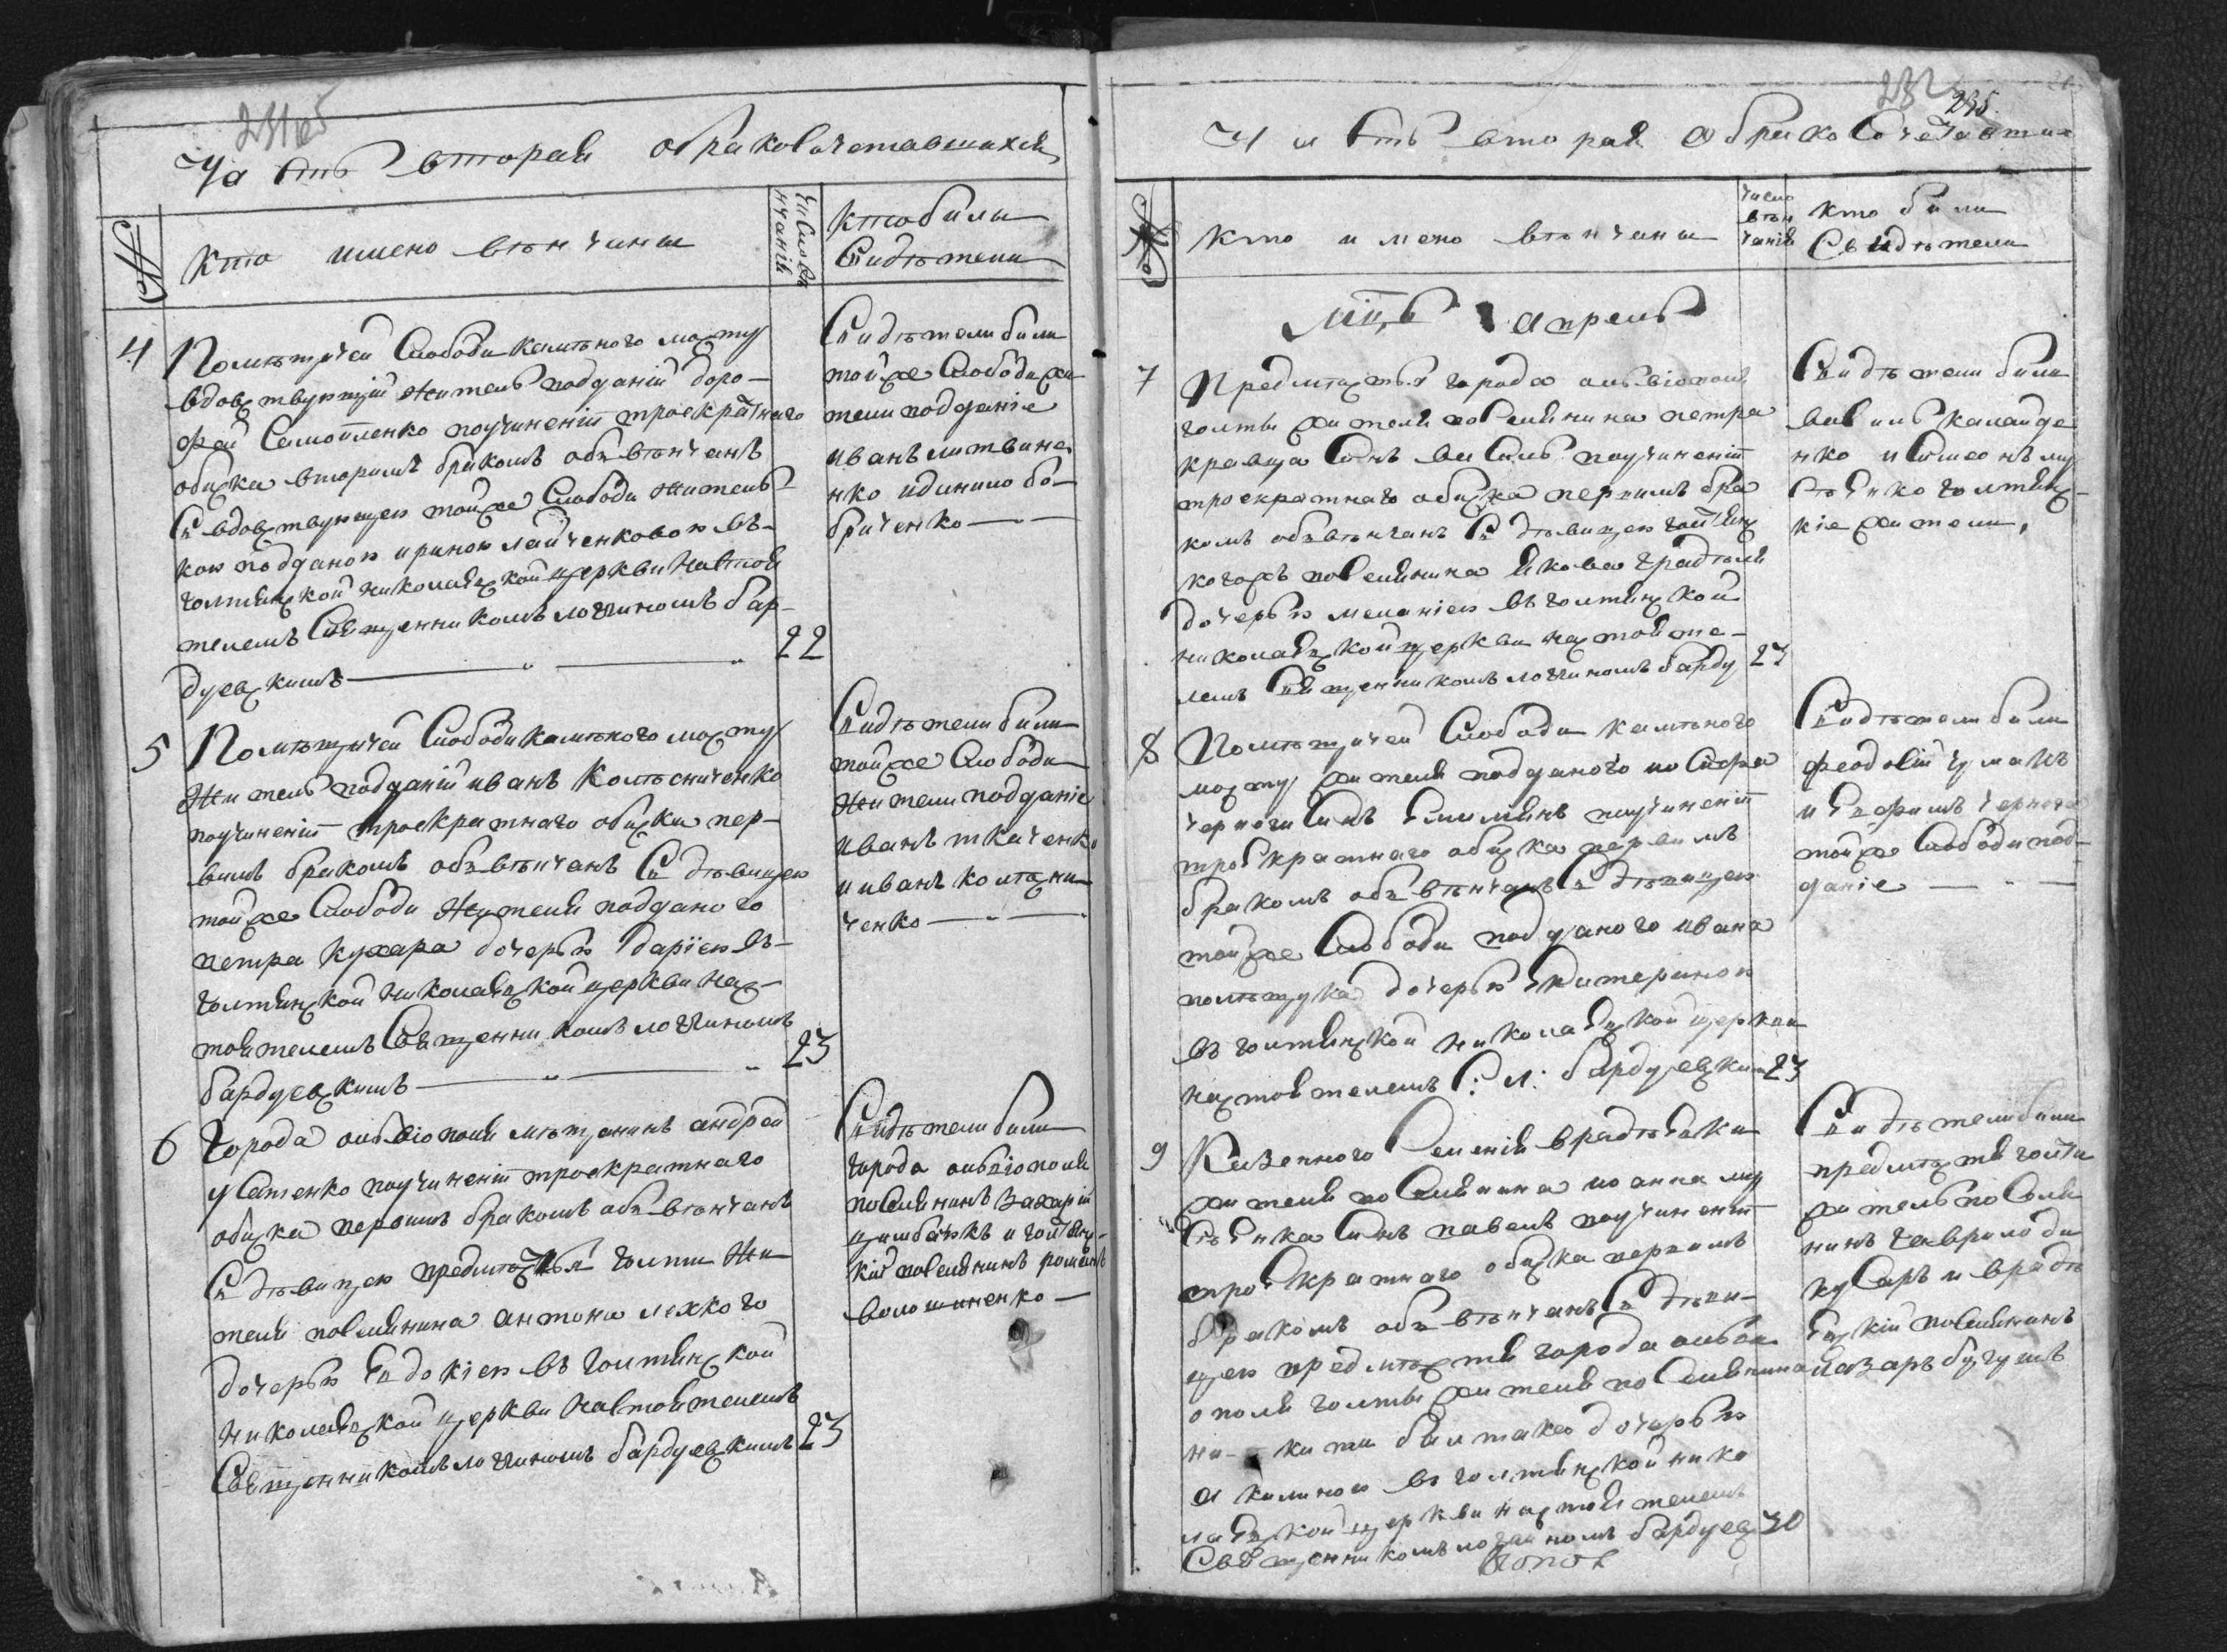 Часть вторая о браковочетавшихся
№
кто имено вѣнчаны
Число вѣнчаній
кто были
Свидѣтели
4
Помѣщичей Слободи камѣного мосту
вдовствующій житель подданій доро-
фей Самойленко поучиненіи троекратнаго
обиска вторимъ бракомъ обвѣнчанъ
Съ вдовствующею тойже Слободи житель
кою подданою ириною лайченковою въ
голтянской николаевской церкви настоя
телемъ Священникомъ логгиномъ бар-
дуевскимъ
22
Свидѣтели били
тойже Слободи жи
тели подданіе
иванъ литвине
нко иданило бо-
бриченко
5
Помѣщичей Слободи камѣного мосту
житель подданій иванъ Колѣсниченко
поучиненіи троекратнаго обиска пер-
вимъ бракомъ обвѣнчанъ Съ дѣвицею
тойже Слободи жителя подданого
петра кухара дочерью дарiею въ
голтянской николаевской церкви нас-
тоятелемъ Священникомъ логгиномъ
бардуевскимъ
23
Свидѣтели били
тойже Слободи
жители подданіе
иванъ ткаченко
и иванъ колѣсни
ченко
6
Города олвіополя мѣщанинъ андрей
усатенко поучиненіи троекратнаго
обиска первимъ бракомъ обвѣнчанъ
Съ дѣвицею предмѣстья голти жи
теля поселянина антона лехкого
дочерью Евдокіею въ голтянской
николаевской церкви настоятелемъ
Священникомъ логгиномъ бардуевскимъ
23
Свидѣтели били
города олвіополя
поселянинъ захарій
цимбалкъ и голтян-
кій поселянинъ романъ
волошиненко
235
Часть вторая о браковочетавших
№
кто имено вѣнчаны
число вѣнчаній
кто били
Свидѣтели
мцъ апрель
7
Предмѣстья города олвіополя
голты жителя поселянина петра
кравца Синъ василь поучиненіи
троекратнаго обиска первимъ бра
комъ обвѣнчанъ Съ дѣвицею голтянс
когожъ поселянина якова
дочерью меланіею въ голтянской
николаевской церкви настояте-
лемъ Священникомъ логгиномъ барду
23
Свидѣтели били
василь калайде
нко и Симеонъ му
голтянс-
кіе жители,
8
Помѣщичей Слободи камѣного
мосту жителя подданого иосифа
чорного Синъ поучиненіи
троекратнаго обиска первимъ
бракомъ обвѣнчанъ Съ дѣвицею
тойже Слободи подданого ивана
полѣщука дочерью Екатериною
въ голтянской николаевской церкви
настоятелемъ С: Л: бардуевским
23
Свидѣтели били
феодосій чумакъ
и Ефимъ чорного
тойже Слободи под-
даніе
9
Казенного Селенія врадѣевки
жителя поселянина иоанна му
Синъ павелъ поучиненіи
троекратнаго обиска первимъ
бракомъ обвѣнчанъ Съ дѣви-
цею предмѣстя города олви
ополя голты жителя поселянина
никити дочерью
акилиною въ голтянской нико
лаевской церкви настоятелемъ
Священникомъ логгиномъ бардуев
30
Свидѣтели били
предмѣстя голти
житель поселя
нинъ гаврило ди
кусаръ и врадѣ
евскій поселянинъ
назаръ бугушъ